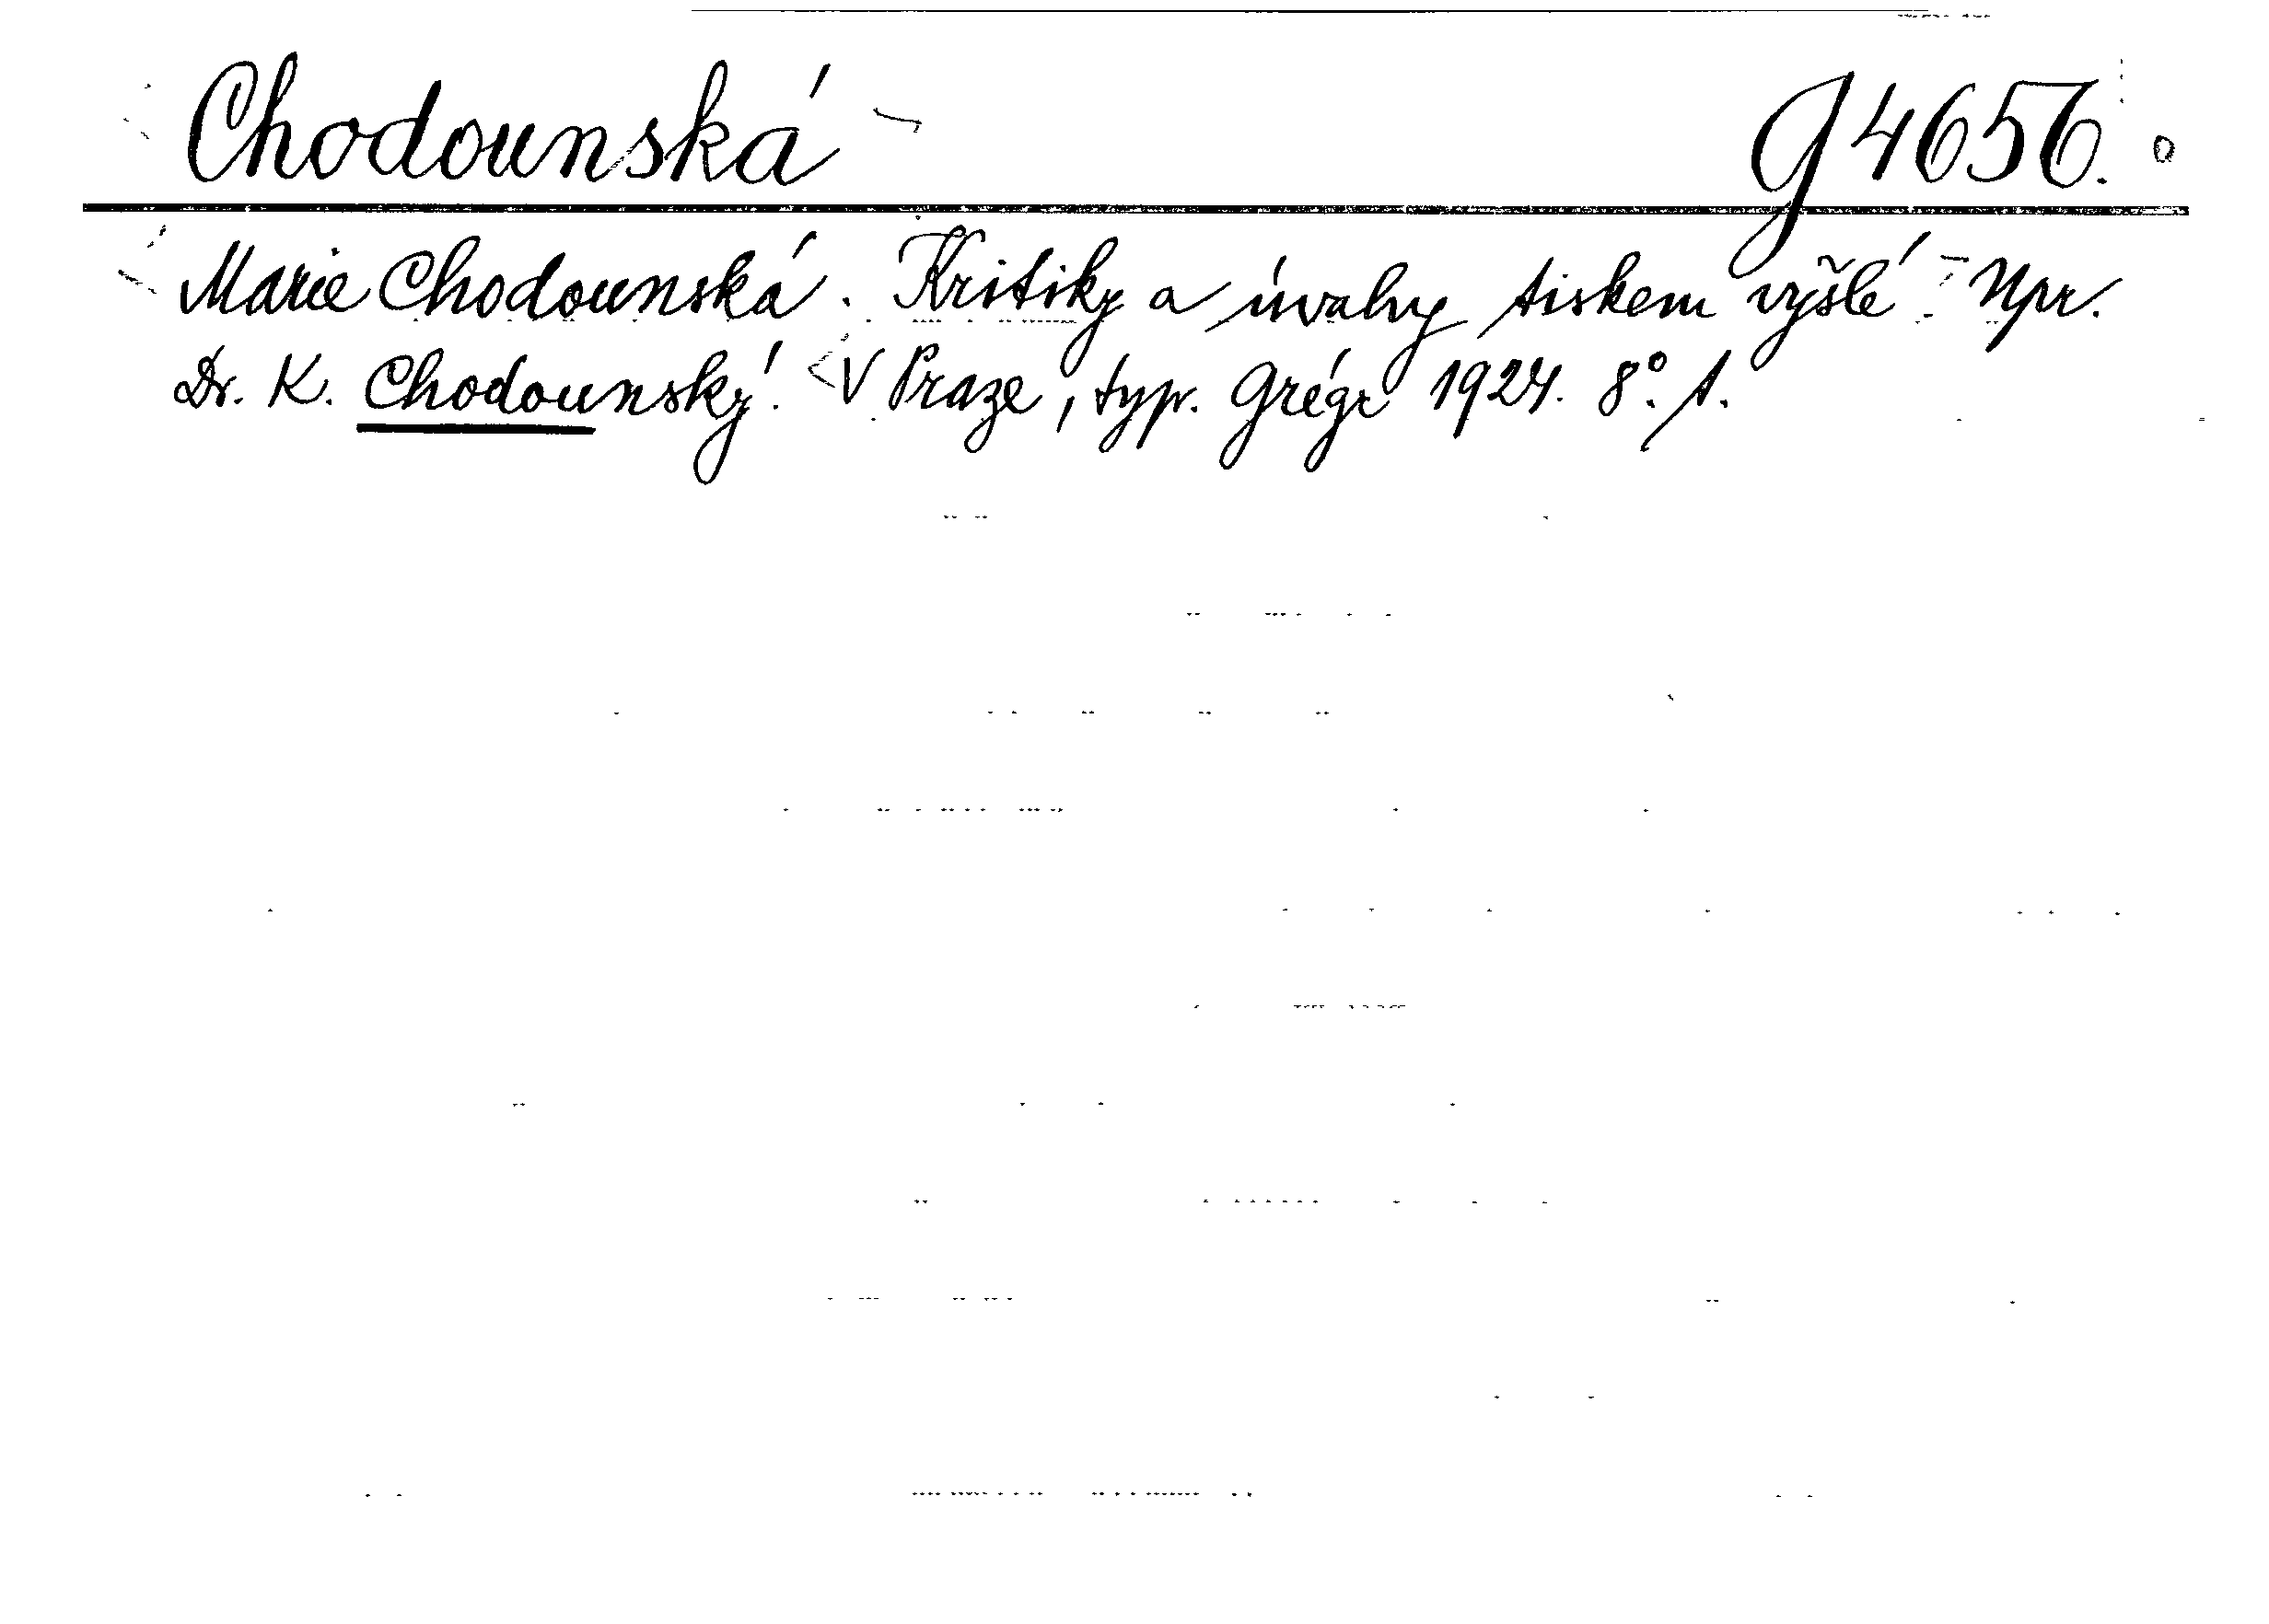 Chodounská g 4656.
Marie Chodounská. Kritiky a úvahy tiskem vyšlé. Upr.
Dr. K. Chodounský. V Praze, typ. Grégr 1924. 8°. 1.